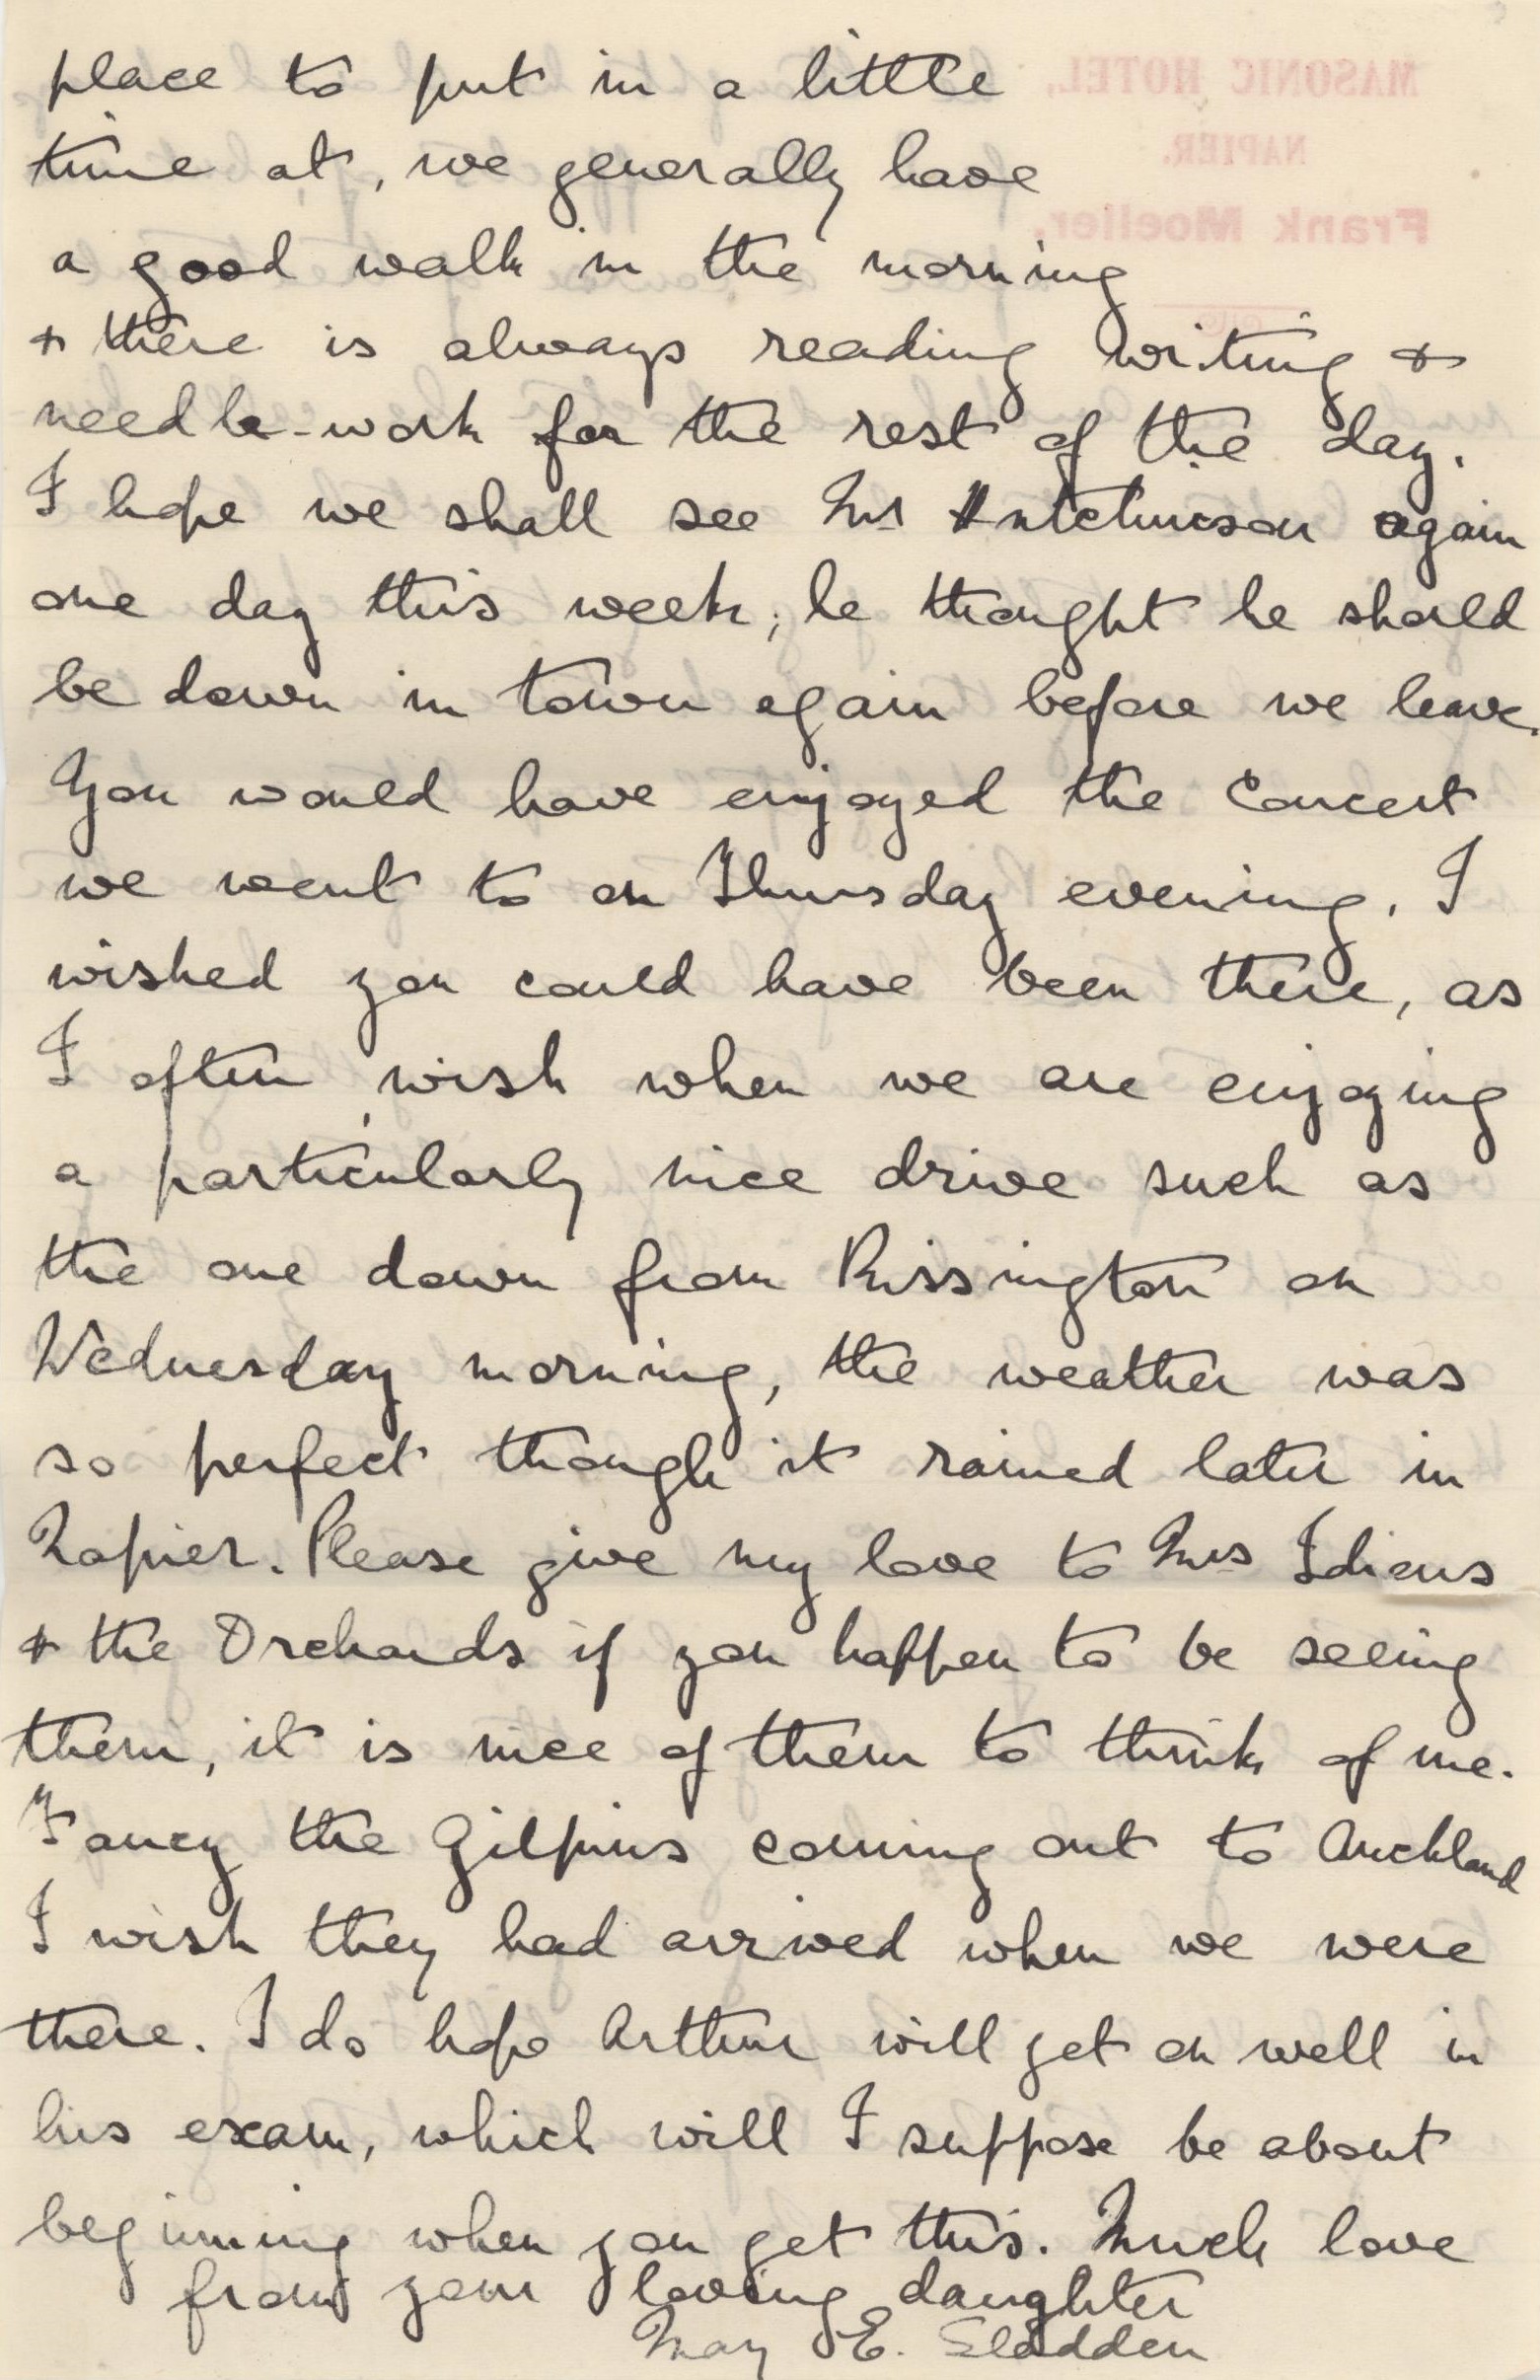 MASONIC HOTEL,
NAPIER.
Frank Moeller.
place to put in a little
time at, we generally have
a good walk in the morning
+ there is always reading writing +
needle-work for the rest of the day.
I hope we shall see Mr Hutchinson again
one day this week; he thought he should
be down in town again before we leave.
You would have enjoyed the Concert
we went to on Thursday evening, I
wished you could have been there, as
I often wish when we are enjoying
a particularly nice drive such as
the one down from Rissington on
Wednesday morning, the weather was
so perfect though it rained later in
Napier. Please give my love to Mrs Idiens
+ the Orchards if you happen to be seeing
them, it is nice of them to think of me.
Fancy the Gilpins coming out to Auckland
I wish they had arrived when we were
there. I do hope Arthur will get on well in
his exam, which will I suppose be about
beginning when you get this. Much love
from your loving daughter
May E. Sladden